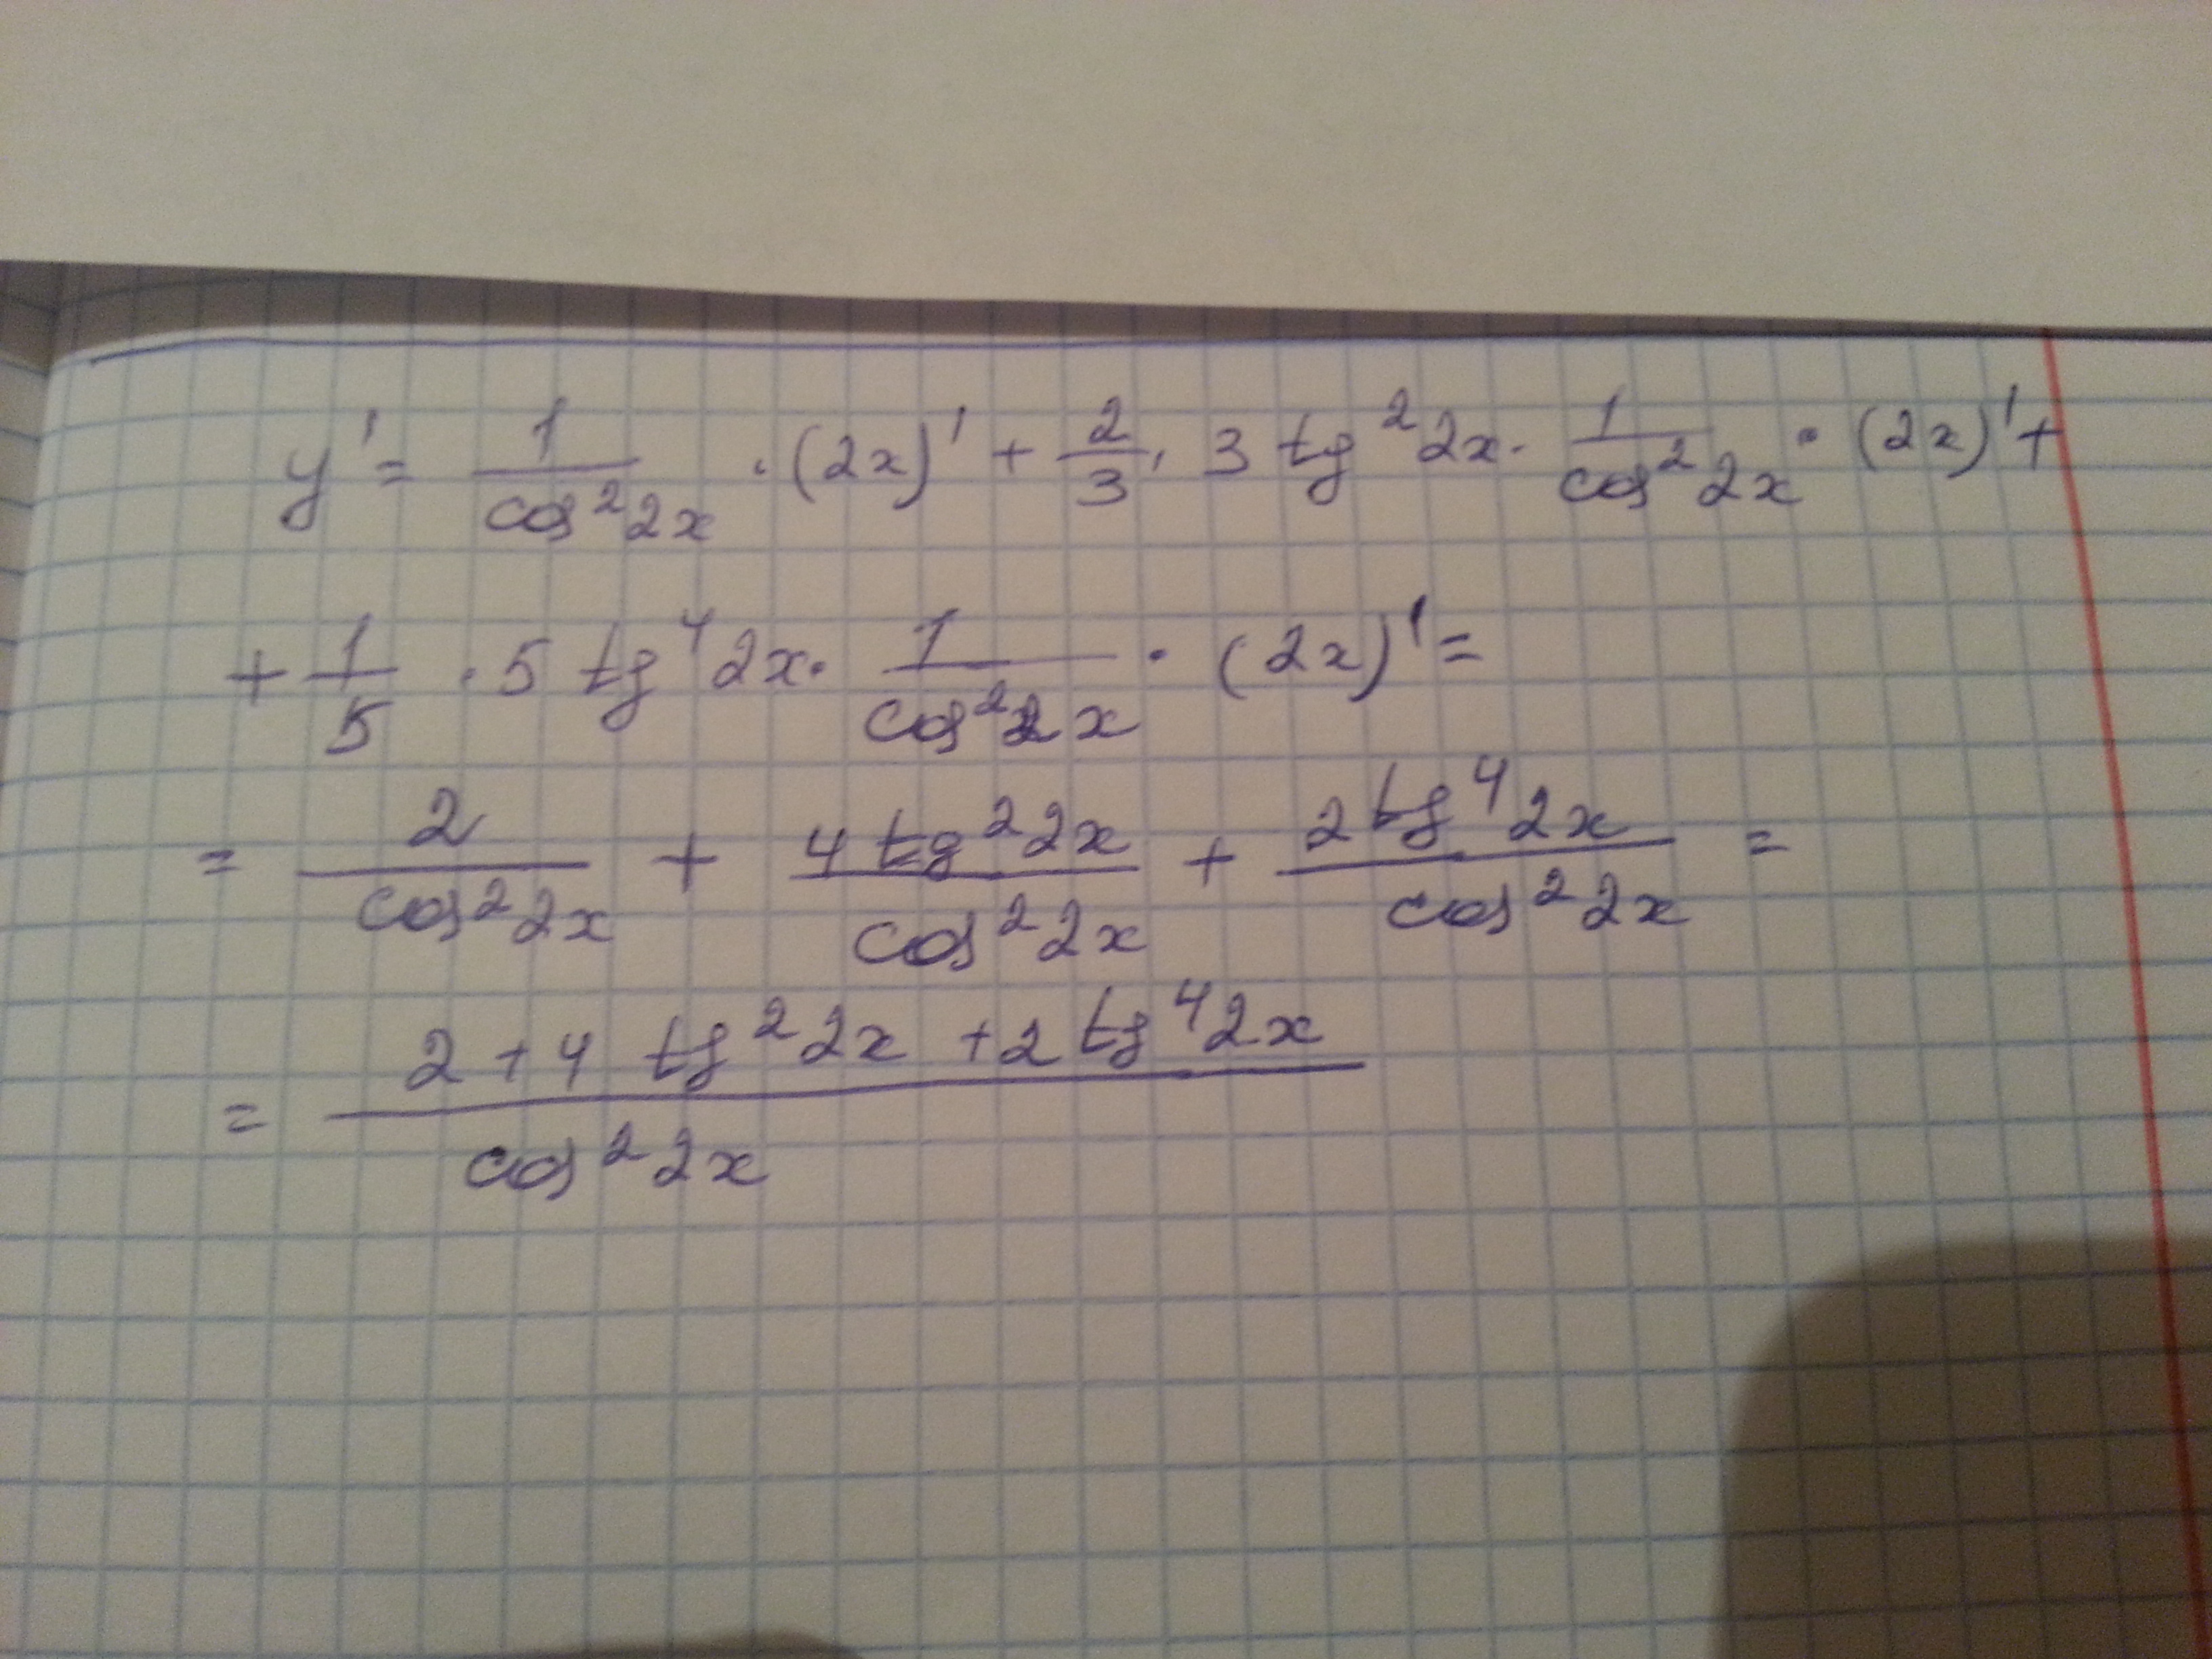 y' = 1/cos²2x · (2x)' + 2/3 · 3 tg²2x · 1/cos²2x · (2x)' +
+ 1/5 · 5 tg⁴2x · 1/cos²2x · (2x)' =
= 2/cos²2x + 4 tg²2x/cos²2x + 2 tg⁴2x/cos²2x =
= (2 + 4 tg²2x + 2 tg⁴2x)/cos²2x